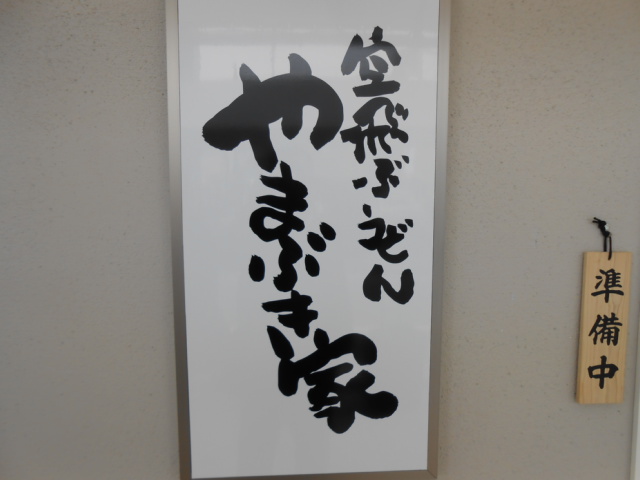 空飛ぶうどん
やまぶき家
準備中